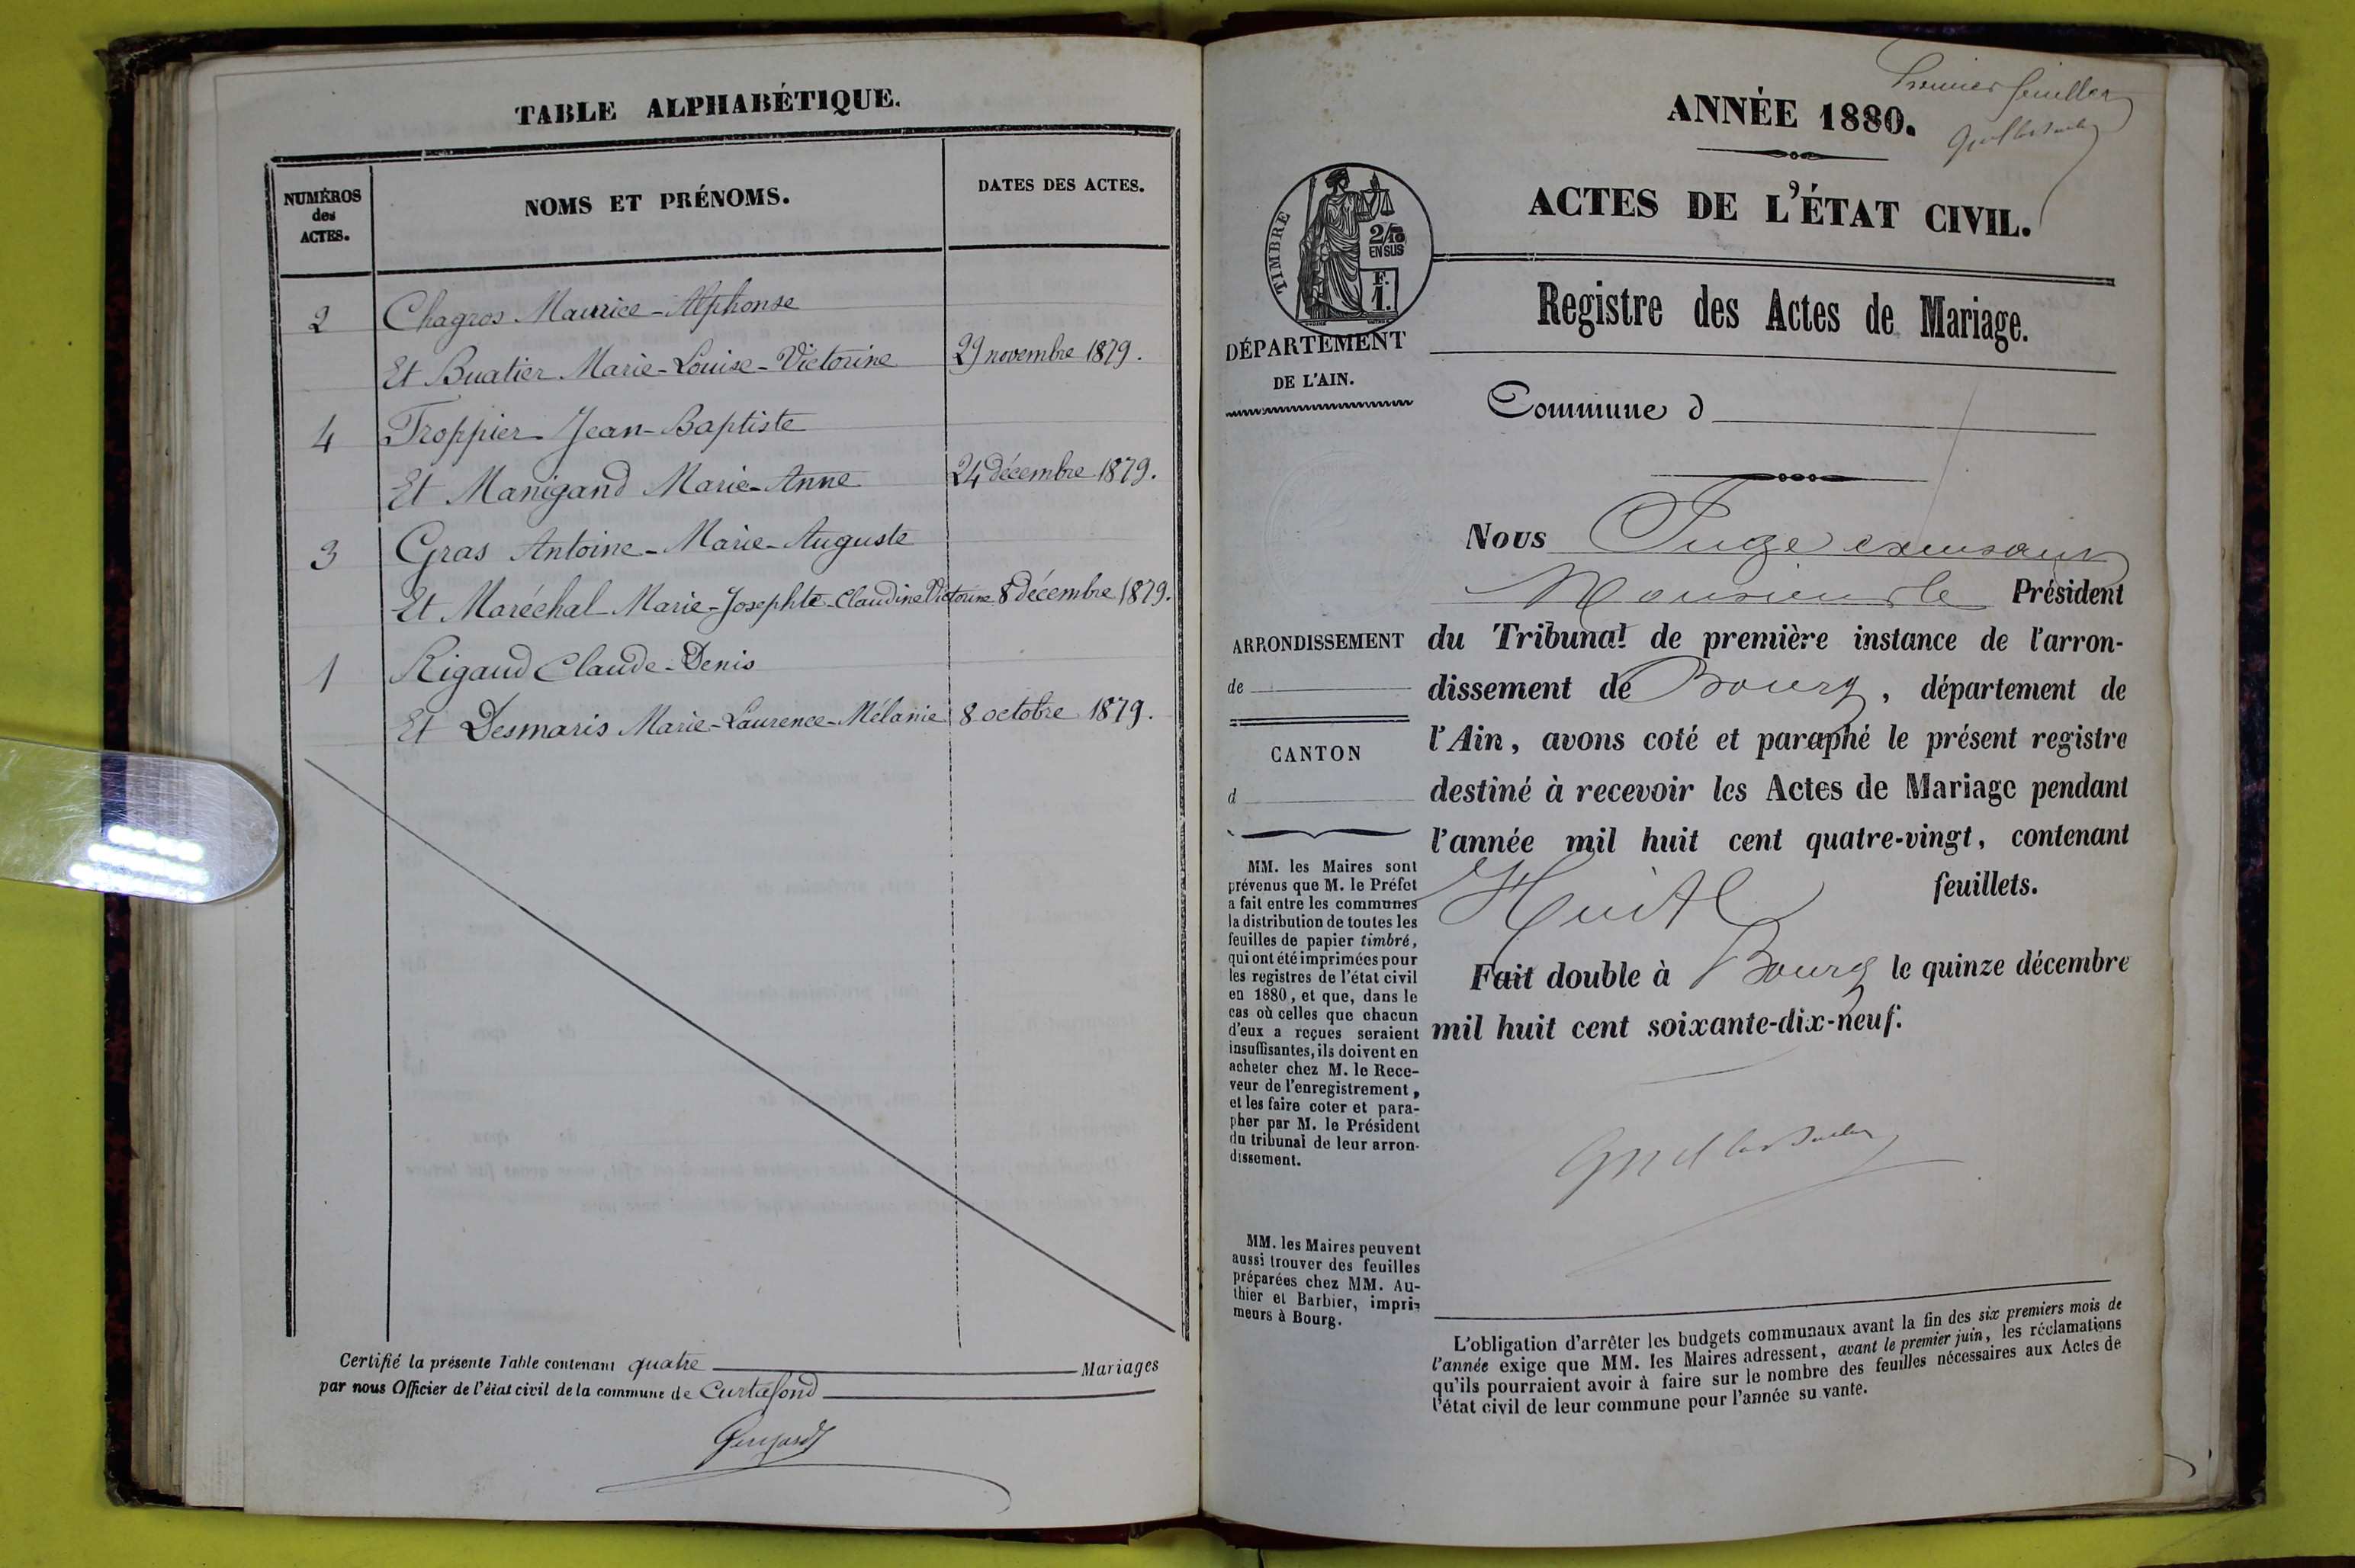 TABLE ALPHABÉTIQUE.
NUMÉROS
des
ACTES.
NOMS ET PRÉNOMS.
DATES DES ACTES.
2 Chagros Maurice-Alphonse
Et Buatier Marie-Louise-Victorine 29 novembre 1879.
4 Troppier Jean-Baptiste
Et Manigand Marie-Anne 24 décembre 1879.
3 Gras Antoine-Marie-Auguste
Et Maréchal Marie-Josephte-Claudine Victorine 8 décembre 1879.
1 Rigaud Claude-Denis
Et Desmaris Marie-Laurence-Mélanie 8 octobre 1879.
Certifié la présente Table contenant quatre Mariages
par nous Officier de l'état civil de la commune de Curtafond
Premier feuillet
ANNÉE 1880.
ACTES DE L'ÉTAT CIVIL.
TIMBRE
2/10
EN SUS
F.
1.
DÉPARTEMENT
DE L'AIN.
Registre des Actes de Mariage.
Commune d
Nous Juge
Monsieur le Président
du Tribunal de première instance de l'arron-
dissement de Bourg, département de
l'Ain, avons coté et paraphé le présent registre
destiné à recevoir les Actes de Mariage pendant
l'année mil huit cent quatre-vingt, contenant
Huit feuillets.
Fait double à Bourg le quinze décembre
mil huit cent soixante-dix-neuf.
ARRONDISSEMENT
de
CANTON
d
MM. les Maires sont
prévenus que M. le Préfet
a fait entre les communes
la distribution de toutes les
feuilles de papier timbré,
qui ont été imprimées pour
les registres de l'état civil
en 1880, et que, dans le
cas où celles que chacun
d'eux a reçues seraient
insuffisantes, ils doivent en
acheter chez M. le Rece-
veur de l'enregistrement,
et les faire coter et para-
pher par M. le Président
du tribunal de leur arron-
dissement.
MM. les Maires peuvent
aussi trouver des feuilles
préparées chez MM. Au-
thier et Barbier, impri-
meurs à Bourg.
L'obligation d'arrêter les budgets communaux avant la fin des six premiers mois de
l'année exige que MM. les Maires adressent, avant le premier juin, les réclamations
qu'ils pourraient avoir à faire sur le nombre des feuilles nécessaires aux Actes de
l'état civil de leur commune pour l'année su vante.